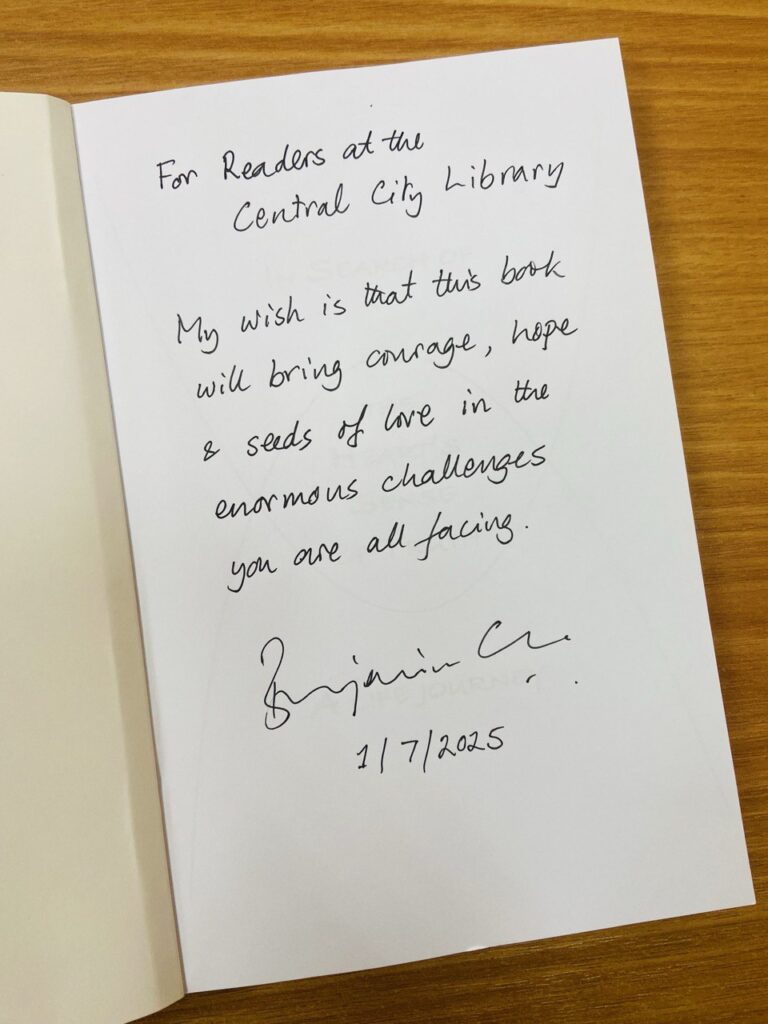 For Readers at the
Central City Library
My wish is that this book
will bring courage, hope
& seeds of love in the
enormous challenges
you are all facing.
Benjamin
1/7/2025